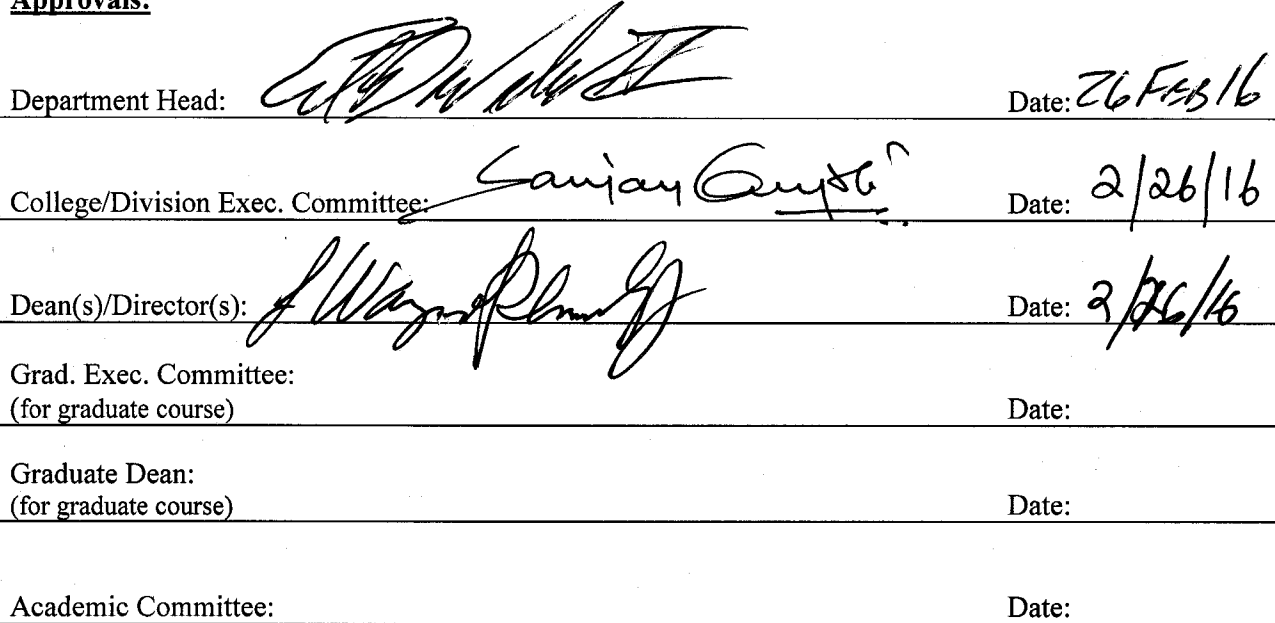 Approvals:
Department Head: Date: 26 FEB 16
College/Division Exec. Committee: Sanjay Date: 2/26/16
Dean(s)/Director(s): Wayne Date: 2/26/16
Grad. Exec. Committee:
(for graduate course) Date:
Graduate Dean:
(for graduate course) Date:
Academic Committee: Date: